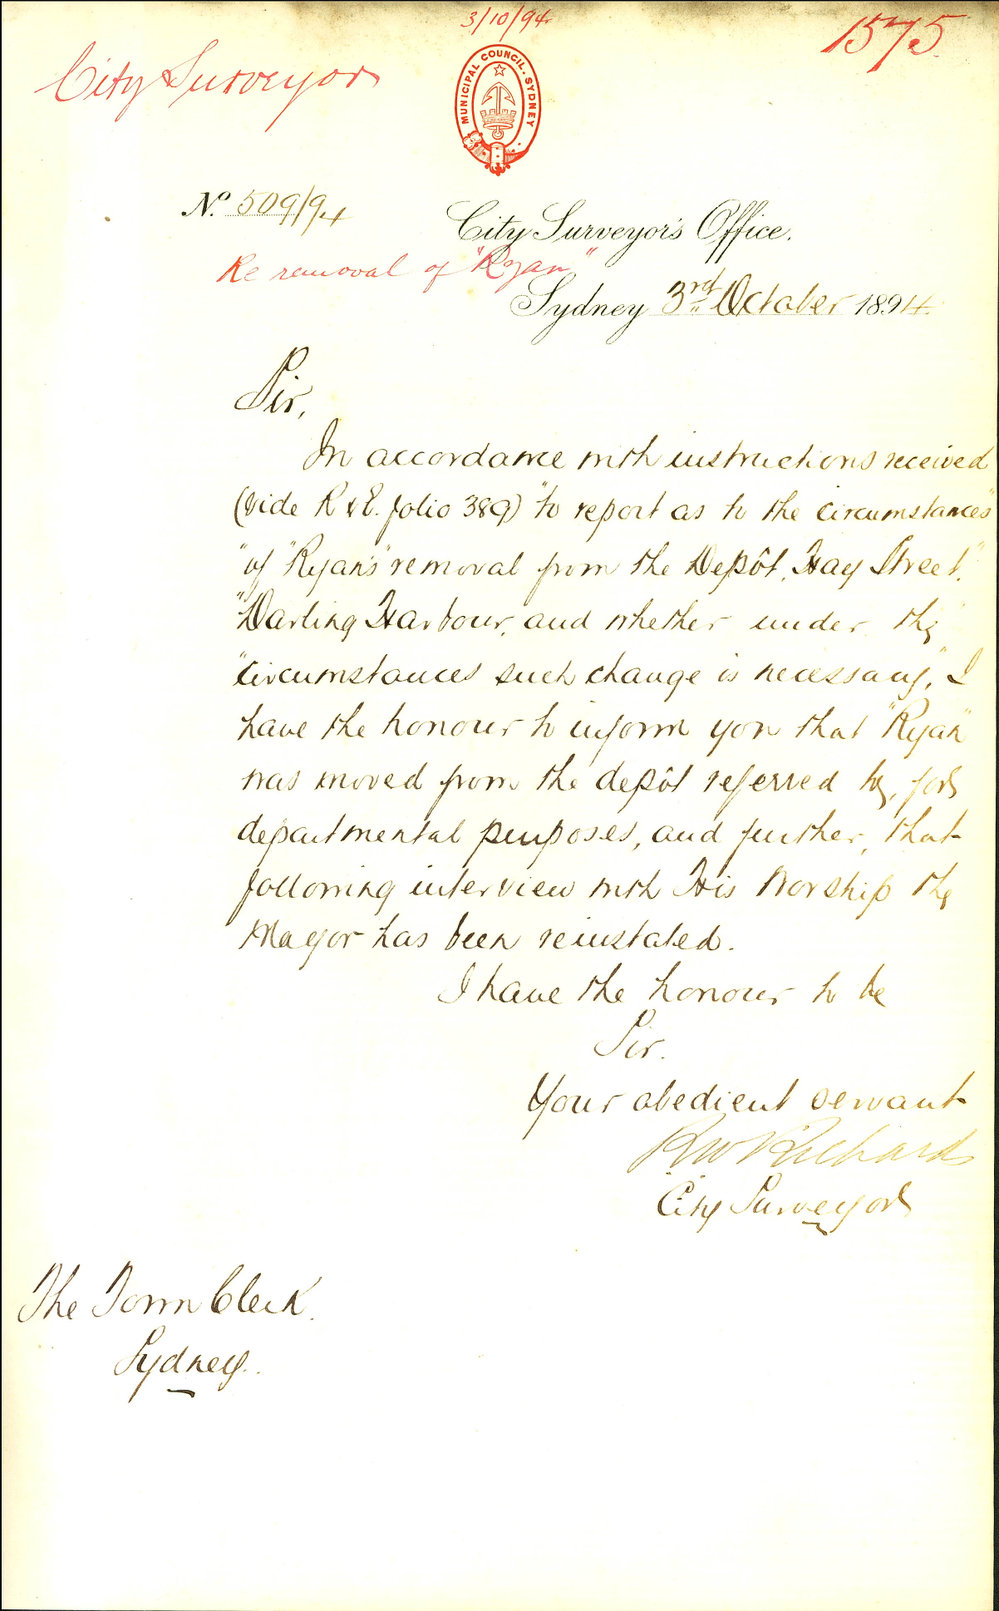 3/10/94
1575.
City Surveyor
MUNICIPAL COUNCIL. SYDNEY
No. 509/94
City Surveyor's Office.
Re removal of "Ryan"
Sydney 3rd October 1894.
Sir,
In accordance with instructions received
(vide R & E. folio 389) "to report as to the circumstances"
"of "Ryan's" removal from the Depôt, Hay Street,"
"Darling Harbour, and whether under the
"circumstances such change is necessary," I
have the honour to inform you that "Ryan"
was moved from the depôt referred to, for
departmental purposes, and further, that
following interview with His Worship the
Mayor has been reinstated.
I have the honour to be
Sir.
Your obedient servant
R W Richards
City Surveyor
The Town Clerk.
Sydney.